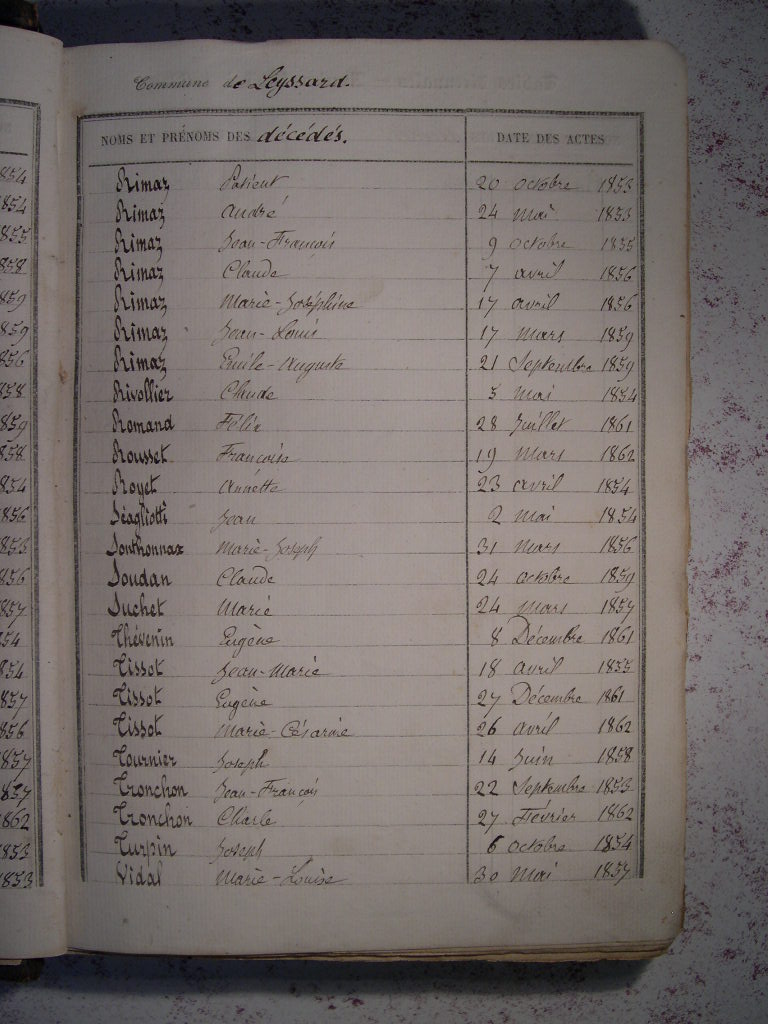 Commune de Leyssard.
NOMS ET PRÉNOMS DES décédés. DATE DES ACTES
854 Rimaz Patient 20 octobre 1853
854 Rimaz André 24 mai 1853
855 Rimaz Jean-François 9 octobre 1855
858 Rimaz Claude 7 avril 1856
859 Rimaz Marie-Joséphine 17 avril 1856
859 Rimaz Jean-Louis 17 mars 1859
856 Rimaz Emile-Auguste 21 Septembre 1859
858 Rivollier Claude 5 mai 1854
859 Romand Félix 28 Juillet 1861
858 Rousset Françoise 19 Mars 1862
854 Royet Annette 23 avril 1854
856 Séagliotti Jean 2 mai 1854
853 Sonthonnax Marie-Joseph 31 Mars 1856
856 Soudan Claude 24 octobre 1859
857 Suchet Marie 24 Mars 1857
54 Thévenin Eugène 8 Décembre 1861
854 Tissot Jean-Marie 18 avril 1855
857 Tissot Eugène 27 Décembre 1861
856 Tissot Marie-Césarine 26 avril 1862
857 Tournier Joseph 14 Juin 1858
857 Tronchon Jean-François 22 Septembre 1853
1862 Tronchon Charle 27 Février 1862
1853 Turpin Joseph 6 octobre 1854
1853 Vidal Marie-Louise 30 Mai 1857